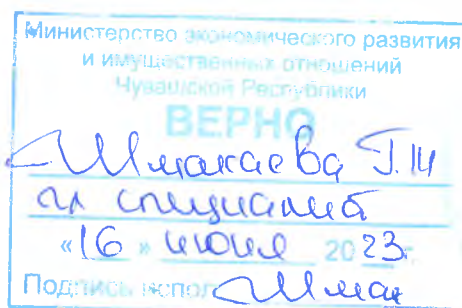 Министерство экономического развития
и имущественных отношений
Чувашской Республики
ВЕРНО
Шмакаева Т.Ш
гл специалист
«16» июня 2023 г.
Подпись испол Шмак